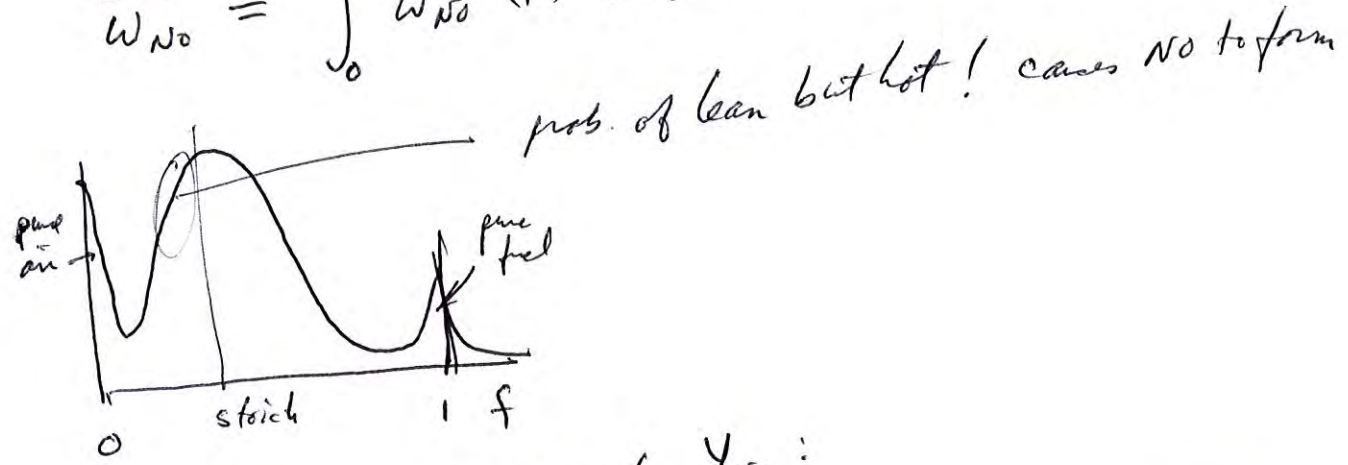 ω_NO = ∫_0 ω_NO (
prob. of lean but hot! causes NO to form
pure
air
pure
fuel
stoich
0
1 f
Y